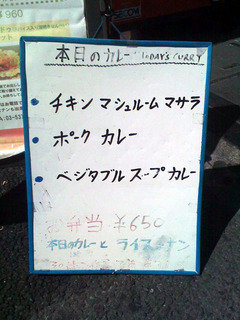 960
本日のカレー TODAY'S CURRY
・チキン マシュルーム マサラ
・ポーク カレー
・ベジタブル スープ カレー
弁当 ¥650
本日のカレーと ライス ナン